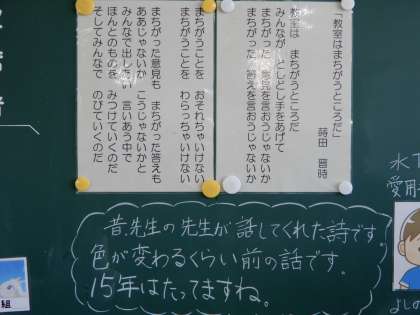 「教室はまちがうところだ」
蒔田　晋時
教室は　まちがうところだ
みんなが　どしどし手をあげて
まちがった　意見を言おうじゃないか
まちがった　答えを言おうじゃないか
まちがうことを　おそれちゃいけない
まちがうことを　わらっちゃいけない
まちがった意見も　まちがった答えも
ああじゃないか　こうじゃないかと
みんなで出しあい　言いあう中で
ほんとのものを　みつけていくのだ
そしてみんなで　のびていくのだ
昔、先生の先生が話してくれた詩です。
色が変わるくらい前の話です。
15年はたってますね。
組
愛用
よしの